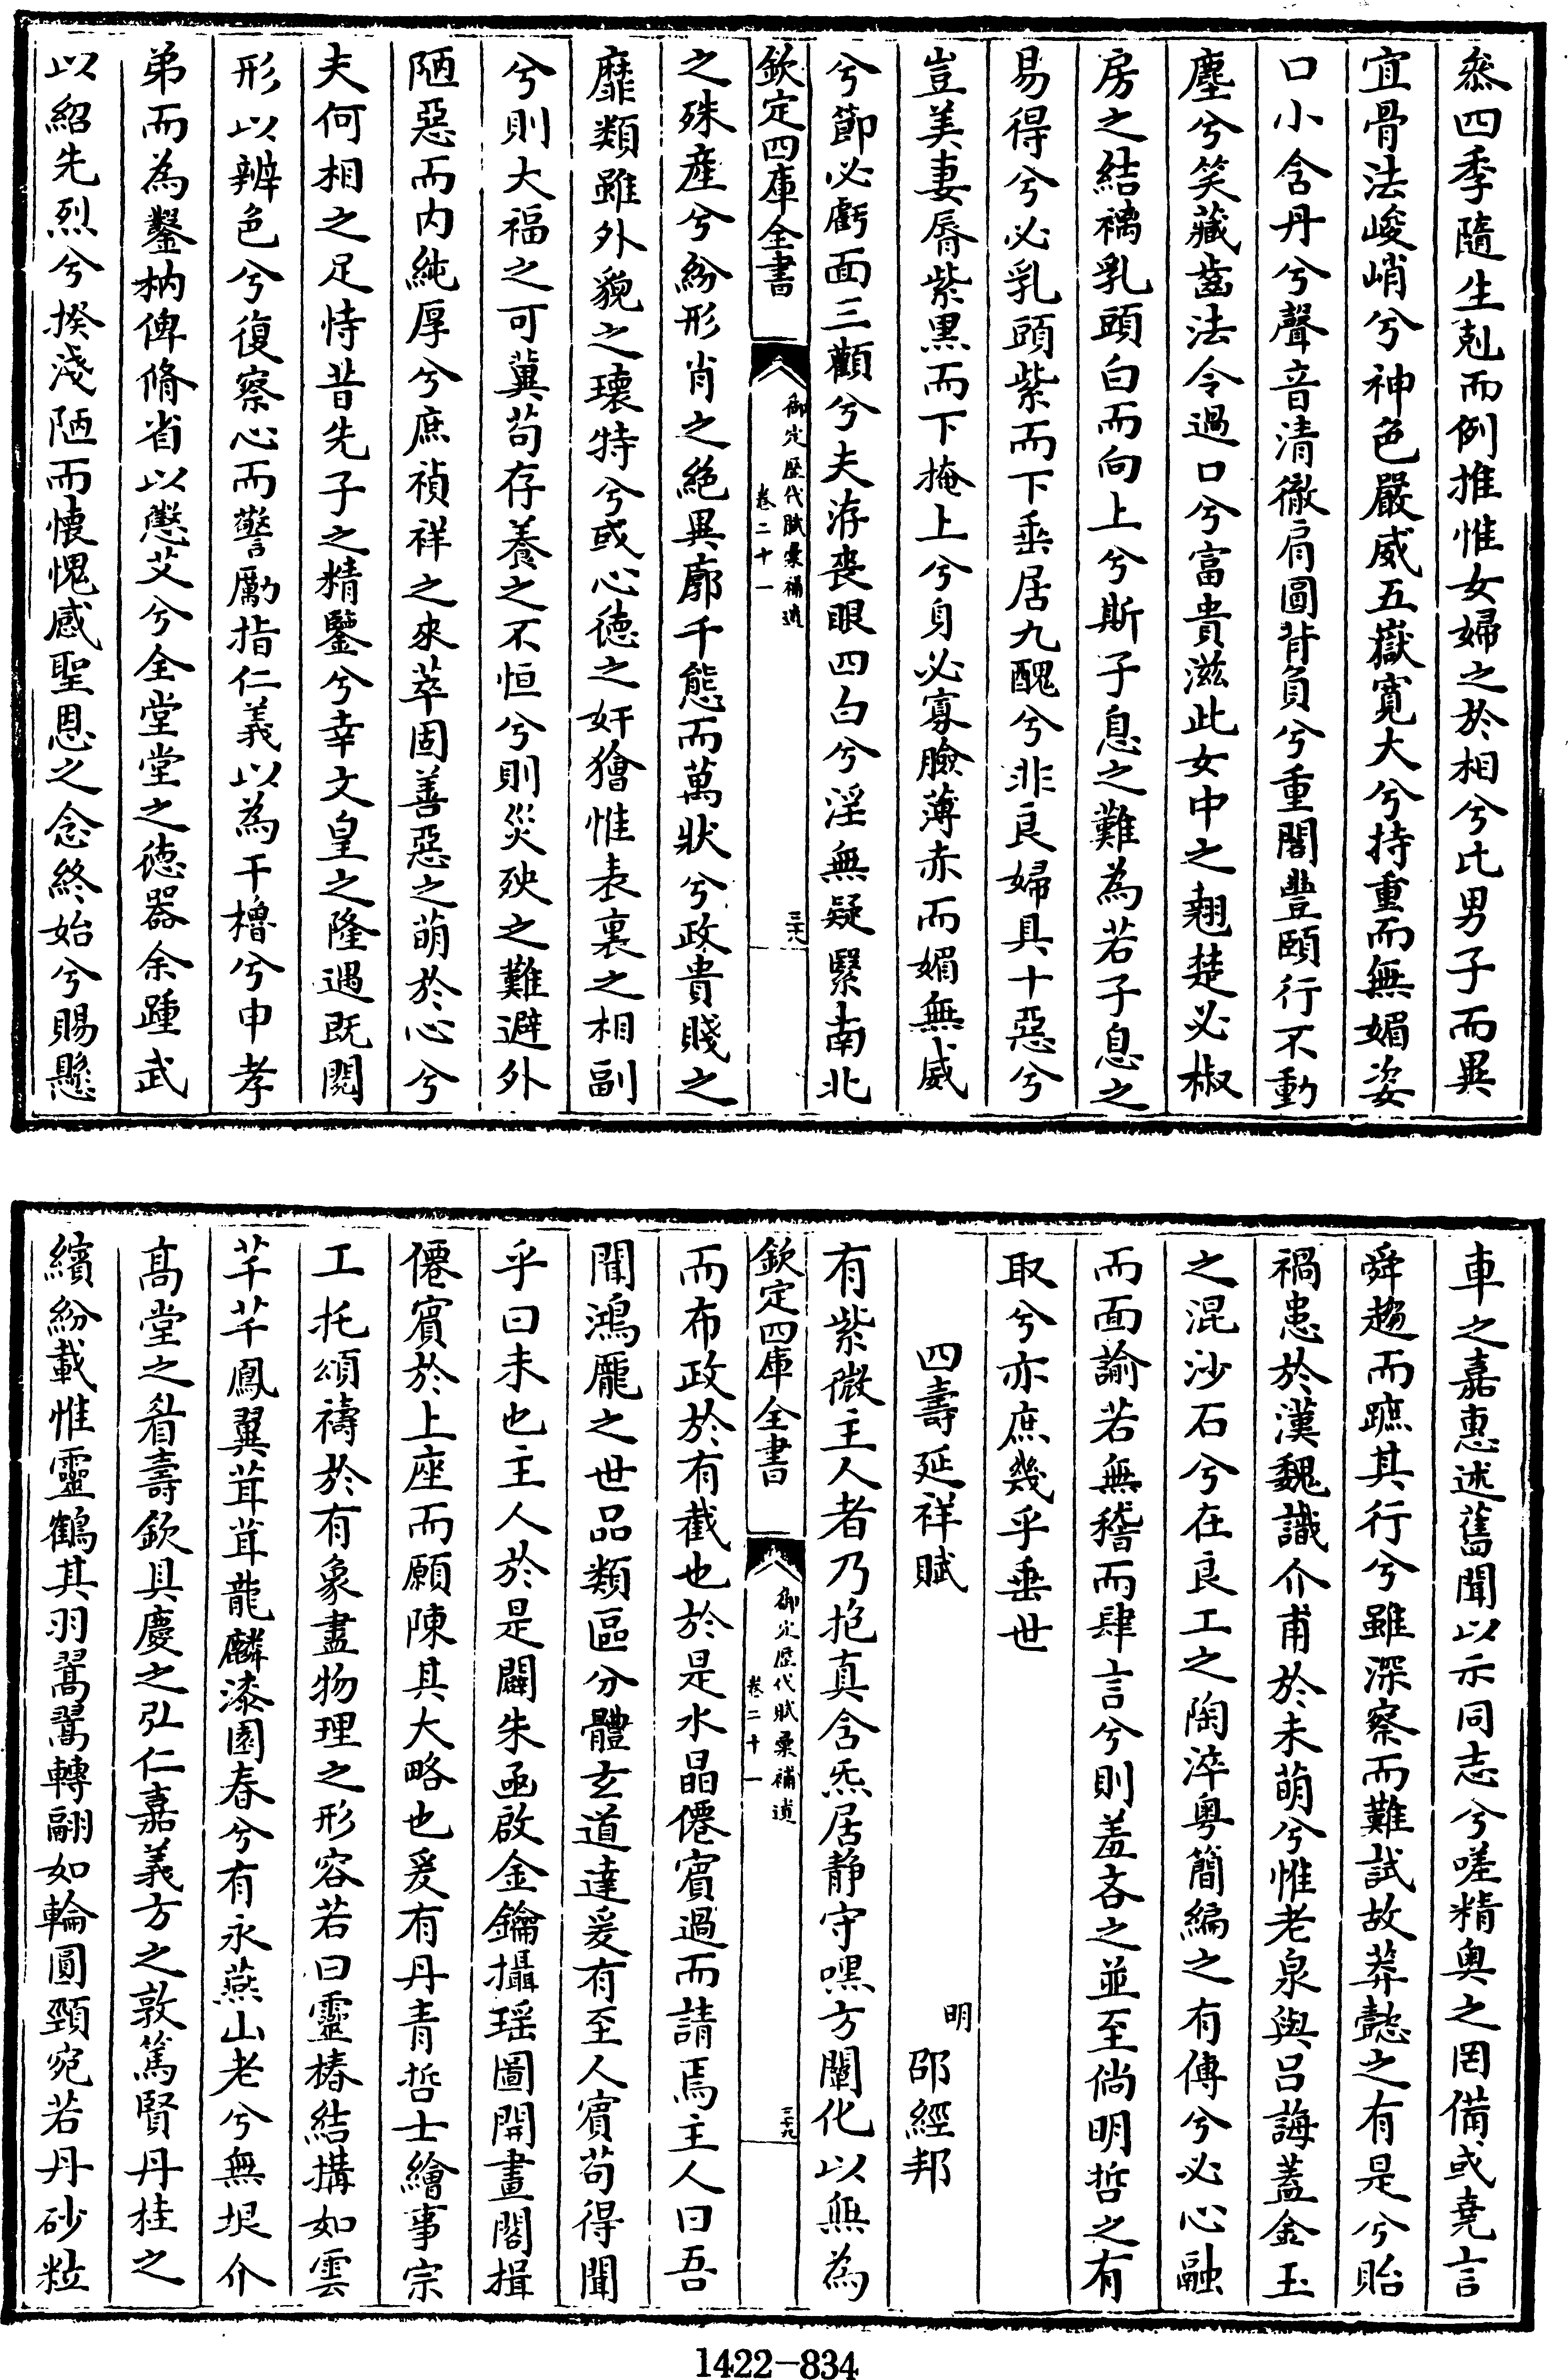 叅四季隨生剋而例推惟女婦之於相兮比男子而異
宜骨法峻峭兮神色嚴威五嶽寛大兮持重而無媚姿
口小含丹兮聲音清徹肩圓背負兮重閣豐頤行不動
塵兮笑藏齒法令過口兮富貴滋此女中之翹楚必椒
房之結褵乳頭白而向上兮斯子息之難為若子息之
易得兮必乳頭紫而下垂居九醜兮非良婦具十惡兮
豈美妻脣紫黑而下掩上兮身必寡臉薄赤而媚無威
兮節必虧面三顴兮夫洊喪眼四白兮淫無疑緊南北
欽定四庫全書
御定歴代賦彙補遺
卷二十一
三十八
之殊産兮紛形肖之絶異廓千態而萬狀兮政貴賤之
靡類雖外貌之瓌特兮或心徳之奸獪惟表裏之相副
兮則大福之可冀苟存養之不恒兮則災殃之難避外
陋惡而内純厚兮庶禎祥之來萃固善惡之萌於心兮
夫何相之足恃昔先子之精鑒兮幸文皇之隆遇既閲
形以辨色兮復察心而警勵指仁義以為干櫓兮申孝
弟而為鑿枘俾脩省以懲艾兮全堂堂之徳器余踵武
以紹先烈兮揆淺陋而懐愧感聖恩之念終始兮賜懸
車之嘉惠述舊聞以示同志兮嗟精奥之罔備或堯言
舜趨而蹠其行兮雖深察而難試故莽懿之有是兮貽
禍患於漢魏識介甫於未萌兮惟老泉與吕誨蓋金玉
之混沙石兮在良工之陶淬粤簡編之有傳兮必心融
而面諭若無稽而肆言兮則羞吝之並至倘明哲之有
取兮亦庶幾乎垂世
四壽延祥賦
明
邵經邦
有紫微主人者乃抱真含炁居静守嘿方闡化以無為
欽定四庫全書
御定歴代賦彙補遺
卷二十一
三十九
而布政於有截也於是水晶僊賓過而請焉主人曰吾
聞鴻龎之世品類區分體玄道達爰有至人賓苟得聞
乎曰未也主人於是闢朱函啟金鑰攝瑶圖開畫閣揖
僊賓於上座而願陳其大略也爰有丹青哲士繪事宗
工托頌禱於有象盡物理之形容若曰靈椿結搆如雲
芊芊鳳翼茸茸龍麟漆園春兮有永燕山老兮無垠介
髙堂之眉壽欽具慶之弘仁嘉義方之敦篤賢丹桂之
繽紛載惟靈鶴其羽翯翯轉翮如輪圓頸宛若丹砂粒
1422-834